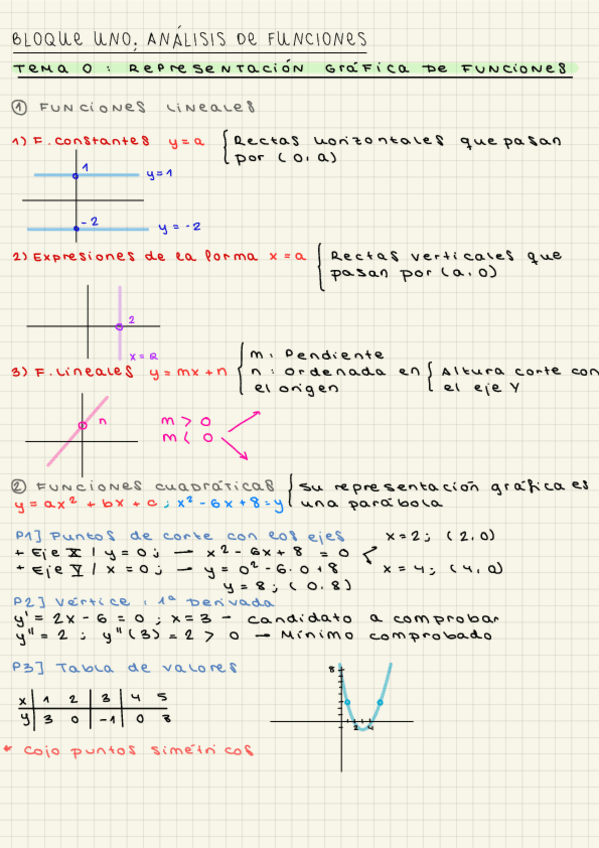 BLOQUE UNO: ANÁLISIS DE FUNCIONES
TEMA 0: REPRESENTACIÓN GRÁFICA DE FUNCIONES
① FUNCIONES LINEALES
1) F. constantes y=a { Rectas horizontales que pasan
por (0,a)
1
y=1
-2
y=-2
2) Expresiones de la forma x=a { Rectas verticales que
pasan por (a,0)
2
x=2
3) F. Lineales y=mx+n { m: Pendiente
n: Ordenada en { Altura corte con
el origen el eje Y
n
m > 0
m < 0
② FUNCIONES CUADRÁTICAS { Su representación gráfica es
y=ax²+bx+c ; x²-6x+8=y una parábola
P1] Puntos de corte con los ejes x=2; (2,0)
+ Eje X / y=0; — x²-6x+8 = 0 <
+ Eje Y / x=0; — y=0²-6·0+8 x=4; (4,0)
y=8; (0,8)
P2] Vértice: 1ª Derivada
y' = 2x-6=0; x=3 - candidato a comprobar
y''=2; y''(3)=2>0 — Mínimo comprobado
P3] Tabla de valores
8
x | 1 2 | 3 | 4 5
y | 3 0 | -1 | 0 3
2 4
* cojo puntos simétricos